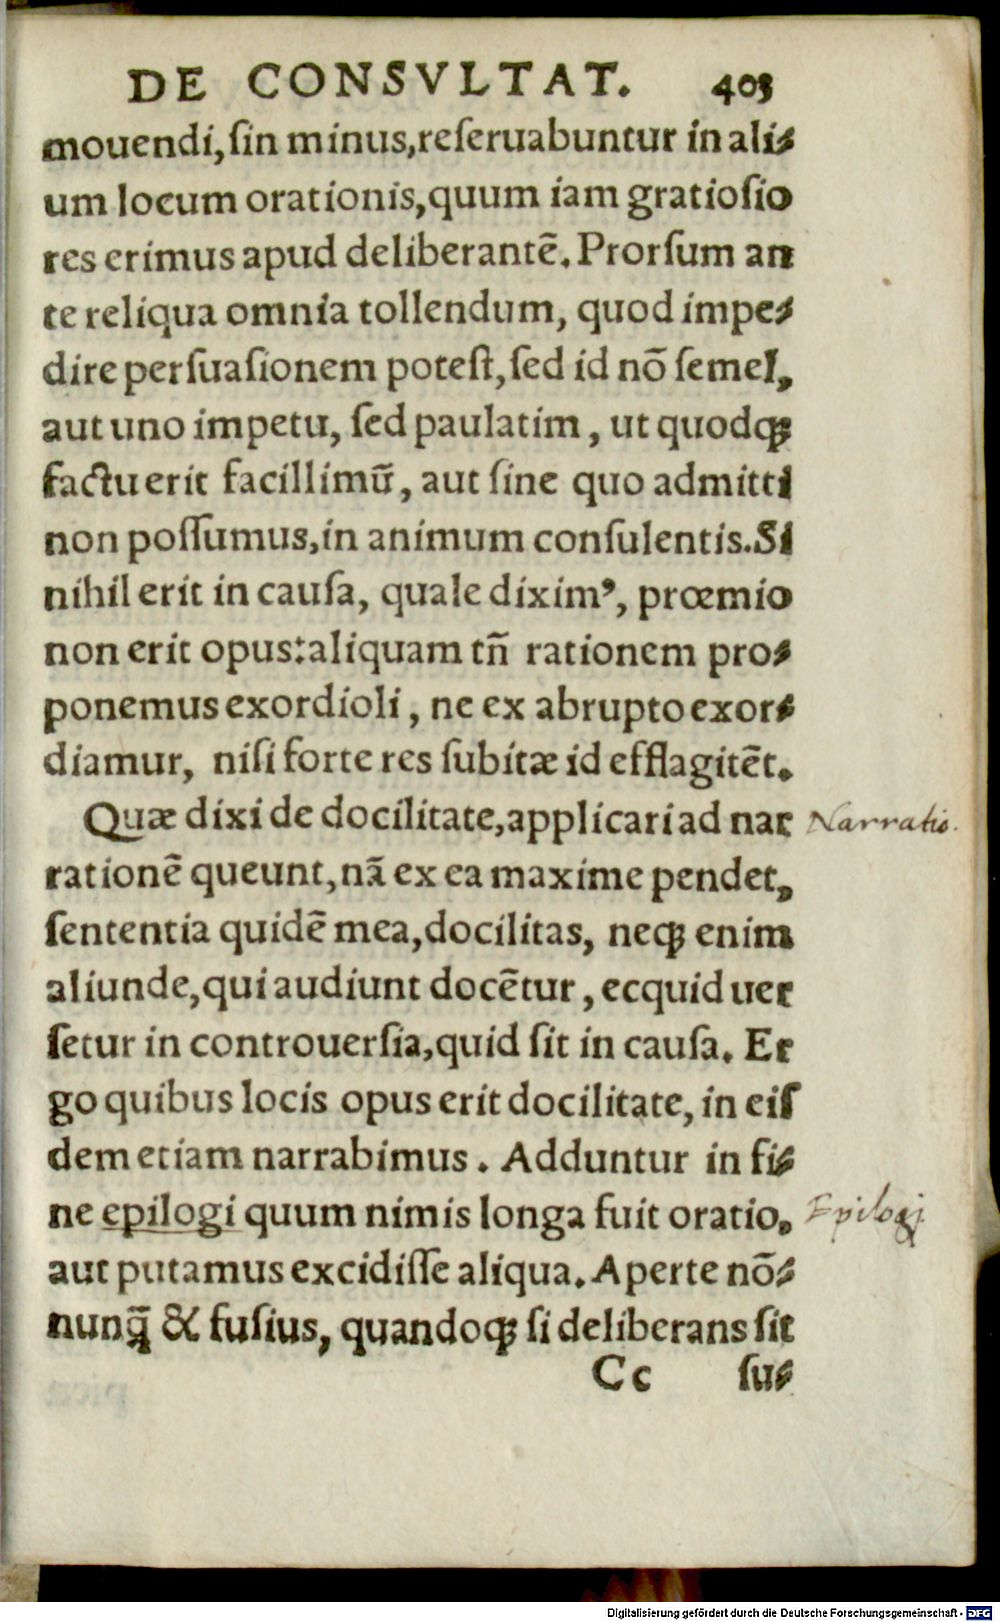 DE CONSVLTAT. 403
mouendi, ſin minus, reſeruabuntur in ali⸗
um locum orationis, quum iam gratioſio
res erimus apud deliberantē. Prorſum an
te reliqua omnia tollendum, quod impe⸗
dire perſuaſionem poteſt, ſed id nō ſemel,
aut uno impetu, ſed paulatim, ut quodqꝫ
factu erit facillimū, aut ſine quo admitti
non poſſumus, in animum conſulentis. Si
nihil erit in cauſa, quale diximꝰ, prœmio
non erit opus: aliquam tn̄ rationem pro⸗
ponemus exordioli, ne ex abrupto exor⸗
diamur, niſi forte res ſubitæ id efflagitēt.
Quæ dixi de docilitate, applicari ad nar Narratio.
rationē queunt, nā ex ea maxime pendet,
ſententia quidē mea, docilitas, neqꝫ enim
aliunde, qui audiunt docētur, ecquid uer
ſetur in controuerſia, quid ſit in cauſa. Er
go quibus locis opus erit docilitate, in eiſ
dem etiam narrabimus. Adduntur in fi⸗
ne epilogi quum nimis longa fuit oratio, Epilogi.
aut putamus excidiſſe aliqua. Aperte nō⸗
nunq̄ & fuſius, quandoqꝫ ſi deliberans ſit
Cc ſu⸗
Digitalisierung gefördert durch die Deutsche Forschungsgemeinschaft - DFG